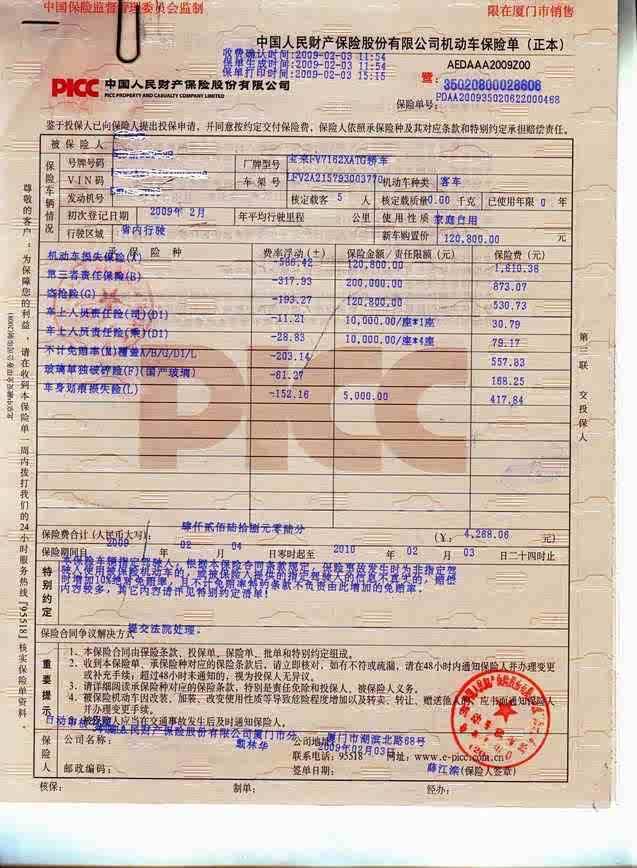 中国保险监督管理委员会监制
限在厦门市销售
中国人民财产保险股份有限公司机动车保险单（正本）
收费确认时间:2009-02-03 11:54
保单生成时间:2009-02-03 11:54
保单打印时间:2009-02-03 15:15
AEDAAA2009Z00
PICC 中国人民财产保险股份有限公司
PICC PROPERTY AND CASUALTY COMPANY LIMITED
35020800028608
保险单号: PDAA200935020622000468
鉴于投保人已向保险人提出投保申请，并同意按约定交付保险费，保险人依照承保险种及其对应条款和特别约定承担赔偿责任。
被保险人
保险车辆情况
号牌号码
厂牌型号 宝来FV7162XATG轿车
VIN码
车架号 LFV2A215793003770
机动车种类 客车
发动机号
核定载客 5 人
核定载质量 0.00 千克
已使用年限 0 年
初次登记日期 2009年 2月
年平均行驶里程 公里
使用性质 家庭自用
行驶区域 省内行驶
新车购置价 120,800.00 元
承保险种 费率浮动（±） 保险金额/责任限额（元） 保险费（元）
机动车损失保险(A) -586.42 120,800.00 1,610.38
第三者责任保险(B) -317.93 200,000.00 873.07
盗抢险(G) -193.27 120,800.00 530.73
车上人员责任险(司)(D1) -11.21 10,000.00/座*1座 30.79
车上人员责任险(乘)(D1) -28.83 10,000.00/座*4座 79.17
不计免赔率(M)覆盖A/B/G/D1/L -203.14 557.83
玻璃单独破碎险(F)(国产玻璃) -61.27 168.25
车身划痕损失险(L) -152.16 5,000.00 417.84
PICC
保险费合计（人民币大写）: 肆仟贰佰陆拾捌元零陆分 （¥: 4,268.06 元）
保险期间自 2009 年 02 月 04 日零时起至 2010 年 02 月 03 日二十四时止
特别约定
本保险车辆指定驾驶人，根据本保险合同条款规定，保险事故发生时为非指定驾
驶人使用被保险机动车的，或被保险人提供的指定驾驶人的信息不真实的，赔偿
时增加10%绝对免赔率，且不计免赔率特约条款不负责由此增加的免赔率。
内容较多，其它内容请并见特别约定清单!
保险合同争议解决方式 提交法院处理。
重要提示
1、本保险合同由保险条款、投保单、保险单、批单和特别约定组成。
2、收到本保险单、承保险种对应的保险条款后，请立即核对，如有不符或疏漏，请在48小时内通知保险人并办理变更
或补充手续；超过48小时未通知的，视为投保人无异议。
3、请详细阅读承保险种对应的保险条款，特别是责任免除和投保人、被保险人义务。
4、被保险机动车因改装、加装、改变使用性质等导致危险程度增加以及转卖、转让、赠送他人的，应书面通知保险人
并办理变更手续。
5、被保险人应当在交通事故发生后及时通知保险人。
保险人
公司名称: 中国人民财产保险股份有限公司厦门市分
公司地址: 厦门市湖滨北路68号
联系电话: 95518 网址: www.e-picc.com.cn
邮政编码:
签单日期: 2009年02月03日
（保险人签章）
核保: 制单: 经办:
尊敬的客户：为保障您的利益，请在收到本保险单一周内拨打我们的24小时服务热线『95518』核实保险单资料。
第三联 交投保人